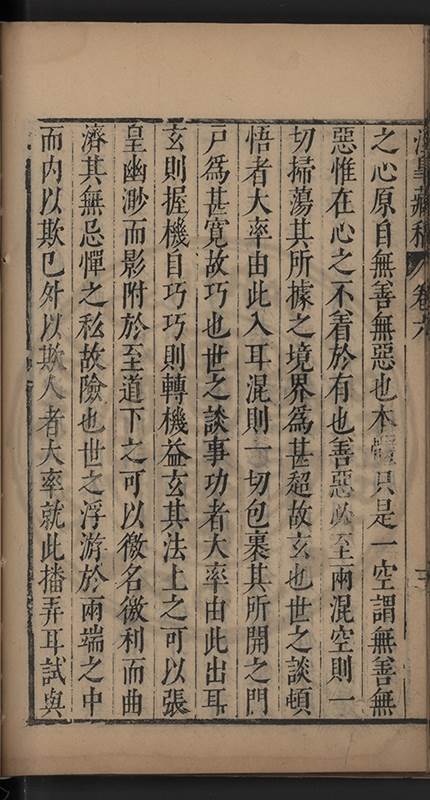 藏稿 卷六
之心原自無善無惡也本體只是一空謂無善無
惡惟在心之不着於有也善惡必至兩混空則一
切掃蕩其所據之境界為甚超故玄也世之談頓
悟者大率由此入耳混則一切包裹其所開之門
戸為甚寬故巧也世之談事功者大率由此出耳
玄則握機自巧巧則轉機益玄其法上之可以張
皇幽渺而影附於至道下之可以徼名徼利而曲
濟其無忌憚之私故險也世之浮游於兩端之中
而内以欺已外以欺人者大率就此播弄耳試與